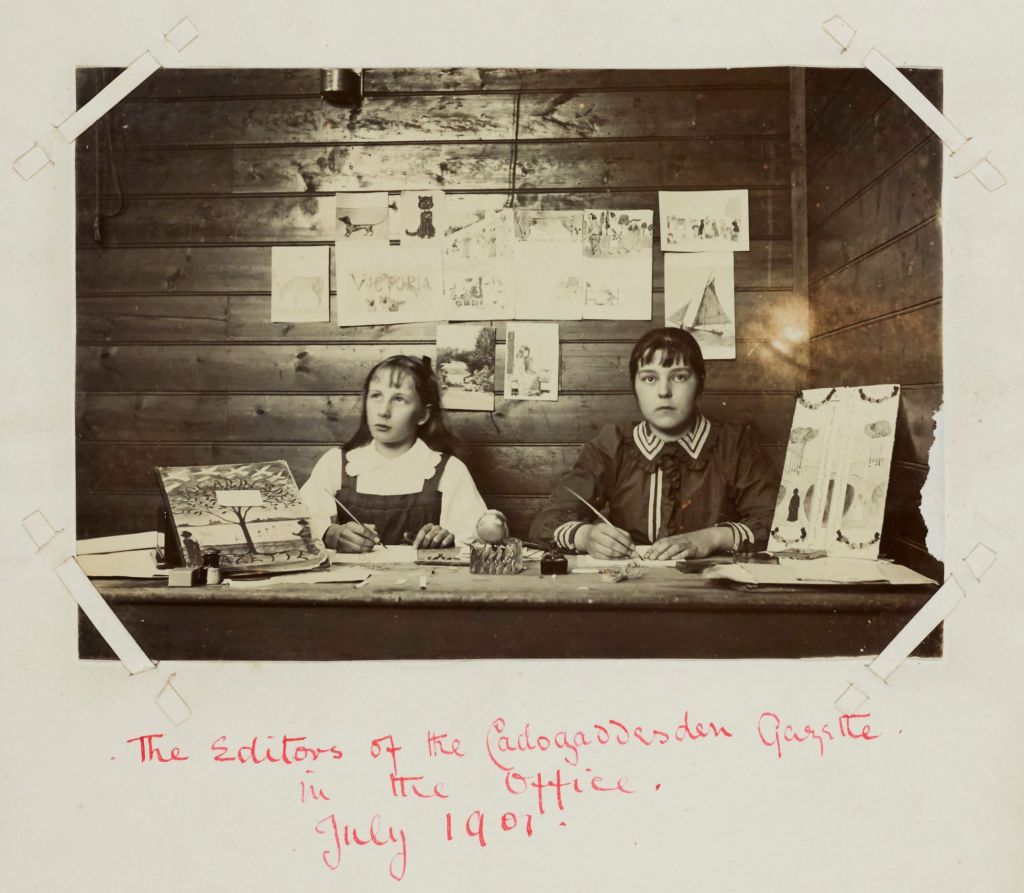 VICTORIA
. The Editors of the Cadogaddesden Gazette .
in the Office .
July 1901 .